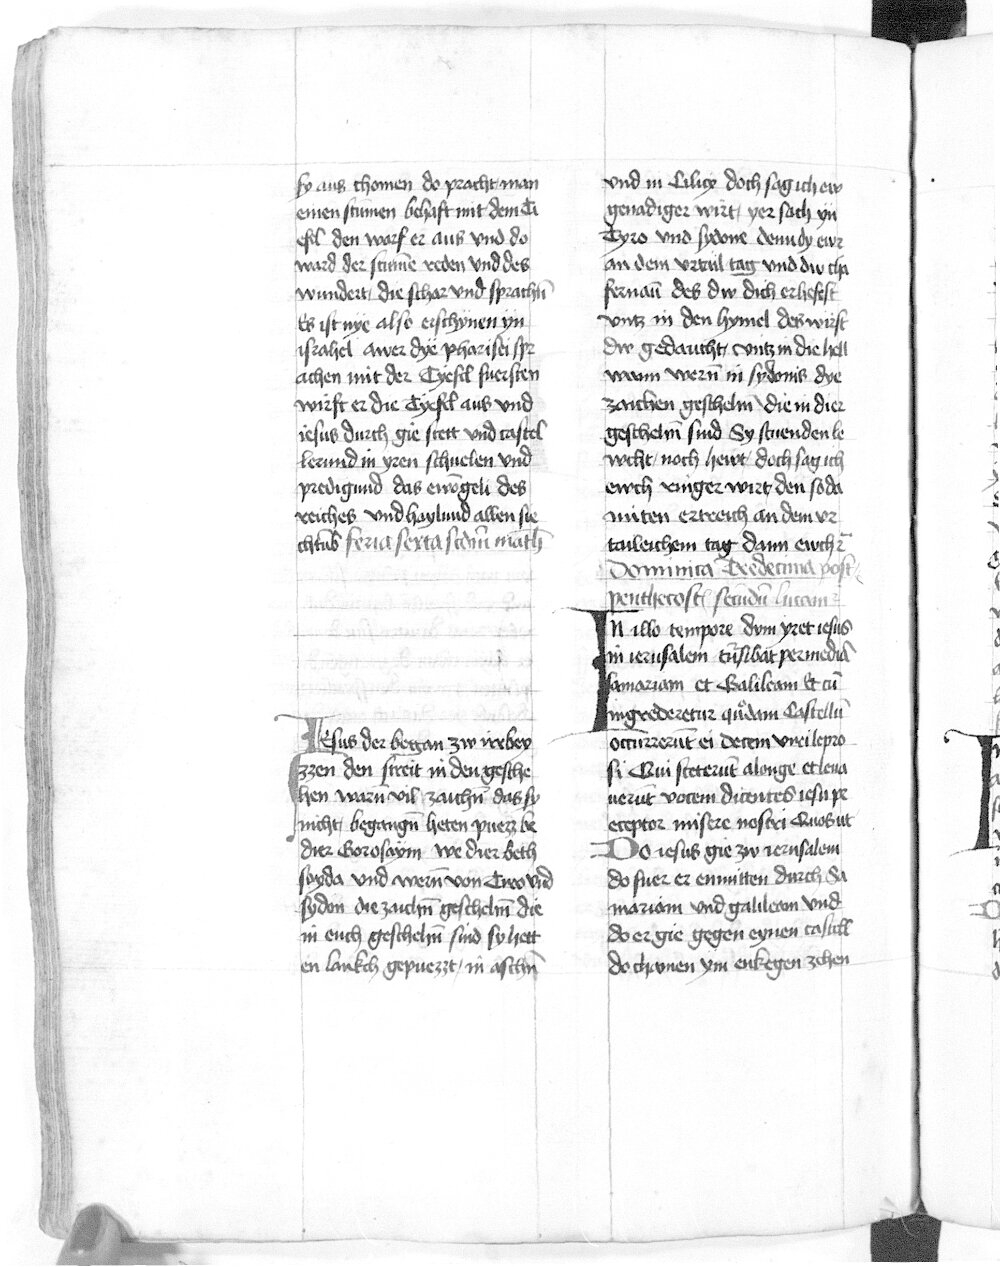 sy aus chomen do pracht man
einen stūmen behaft mit dem Ti
efel den warf er aus vnd do
ward der stūme reden vnd des
wundert die schar vnd sprachn̄
Es ist nye also erschynen yn
israhel awer dye pharisei spr
achen mit der Tyefel fuersten
wirft er die Tyefel aus vnd
iesus durch gie stett vnd castel
lerund in yren schuelen vnd
predigund das ewōgeli des
reiches vnd haylund allen sie
chtūb feria sexta scdm̄ math
Iesus der began zw itebey
zzen den streit in den gesche
hen warn̄ vil zaichn̄ das sy
nicht begangn̄ heten puezz be
dier Corosaym we dier beth
sayda vnd wern̄ von Tiro vnd
sydon die zaichn̄ geschehn̄ die
in euch geschehn̄ sind sy hett
en lankch gepuezzt in aschn̄
vnd in Cilicy doch sag ich ew
genadiger wirt yer sach yn
Tyro vnd sydone denn dy ewr
an dem vrtail tag vnd dw cha
fernaū des dw dich erhefest
vntz in den hymel des wirst
dw gedaucht vntz in die hell
wann wern̄ in sydonis dye
zaichen geschehn̄ die in dier
geschehn̄ sind Sy stuenden le
wcht noch hewt doch sag ich
ewch ringer wirt den soda
miten ertreich an dem vr
taileichem tag dann ewch ꝛc̄
Dominica Tredecima post
penthecost secūdū lucam
In illo tempore dvm yret iesus
in ierusalem trāsibat per mediā
samariam et Galileam Et cū
ingrederetur quoddam Castellū
occurrerūt ei decem viri lepro
si Qui steterūt alonge et leua
uerūt vocem dicentes iesu pre
ceptor misere nostri Quos ut
Do iesus gie zw ierusalem
do fuer er enmitten durch Sa
mariam vnd galileam vnd
do er gie gegen eynen castell
do chomen ym enkegen zehen